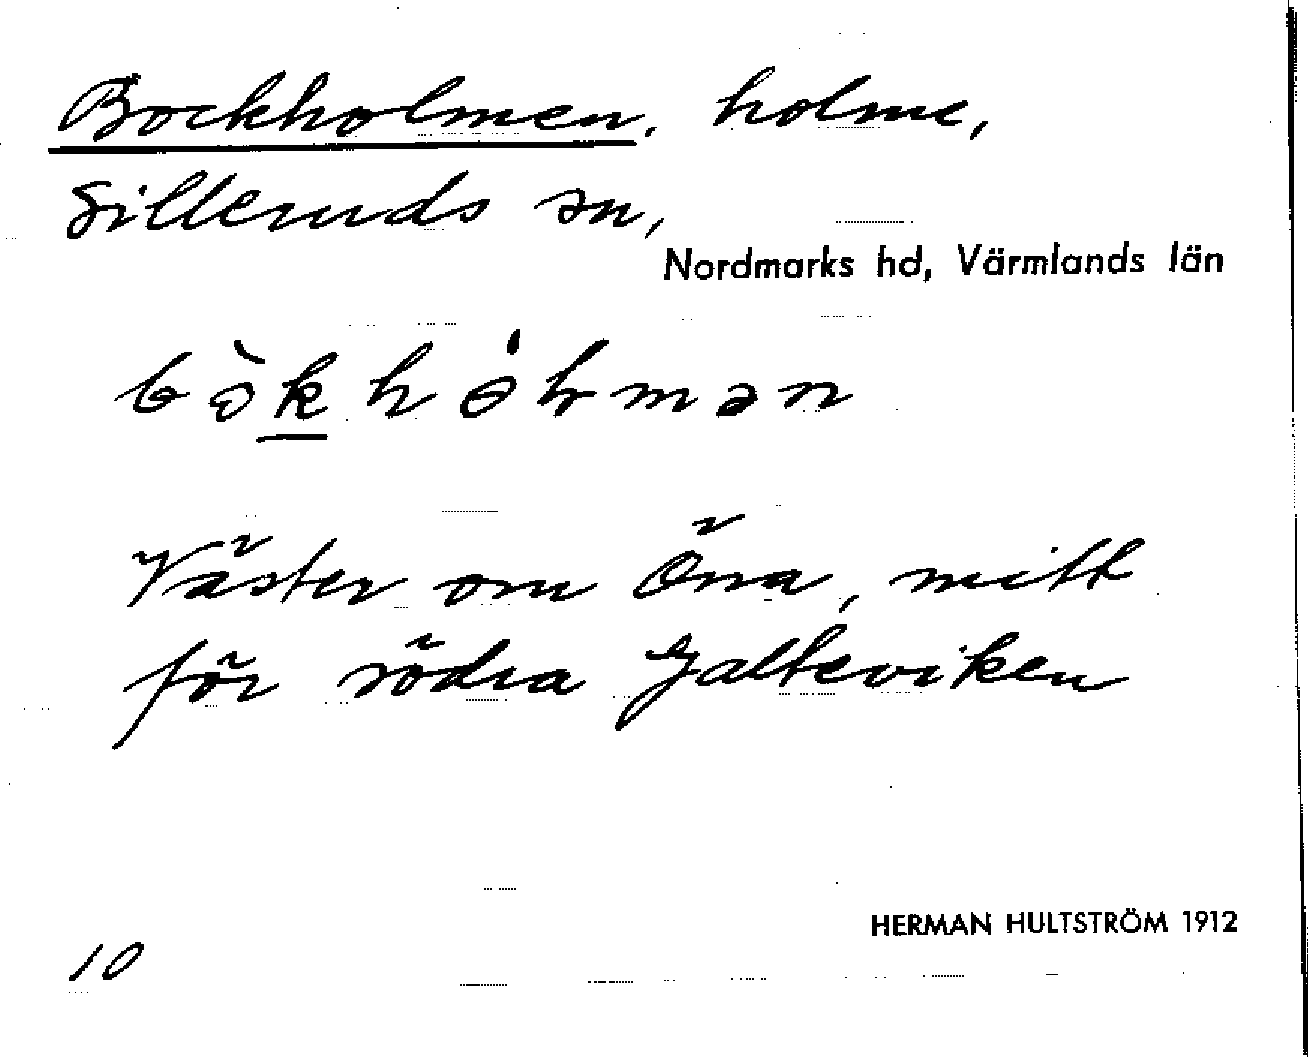 Bockholmen, holme,
Silleruds sn,
Nordmarks hd, Värmlands län
bòkhɵ́ɫmən
Väster om Öna, mitt
för södra Galteviken
HERMAN HULTSTRÖM 1912
10